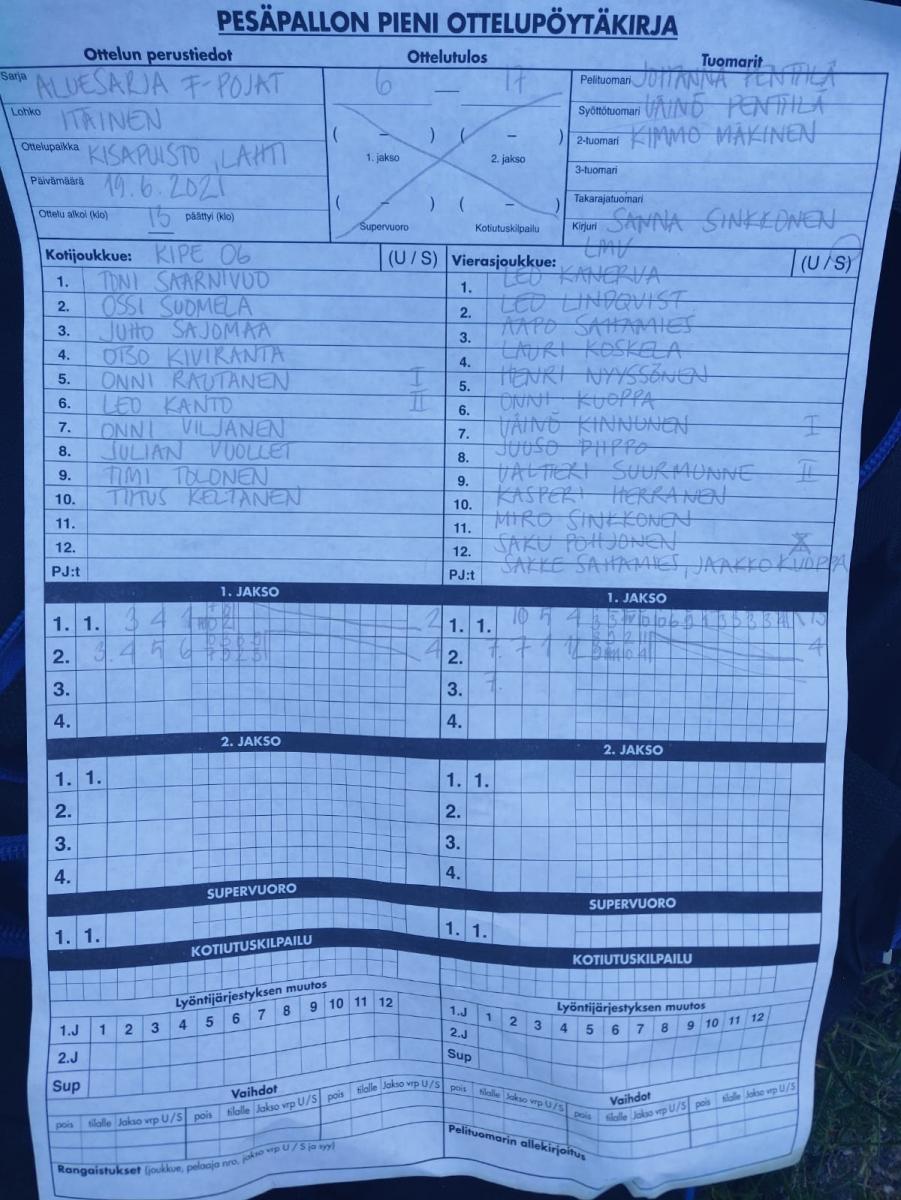 PESÄPALLON PIENI OTTELUPÖYTÄKIRJA
Ottelun perustiedot
Sarja ALUESARJA F-POJAT
Lohko ITÄINEN
Ottelupaikka KISAPUISTO, LAHTI
Päivämäärä 19.6.2021
Ottelu alkoi (klo) 13 päättyi (klo)
Ottelutulos
6 — 17
( – ) ( – )
1. jakso 2. jakso
( – ) ( – )
Supervuoro Kotiutuskilpailu
Tuomarit
Pelituomari JOHANNA PENTTILÄ
Syöttötuomari VÄINÖ PENTTILÄ
2-tuomari KIMMO MÄKINEN
3-tuomari
Takarajatuomari
Kirjuri SANNA SINKKONEN
Kotijoukkue: KIPE 06 (U / S)
1. TONI SAARNIVUO
2. OSSI SUOMELA
3. JUHO SAJOMAA
4. OTSO KIVIRANTA
5. ONNI RAUTANEN I
6. LEO KANTO II
7. ONNI VILJANEN
8. JULIAN VUOLLET
9. TIMI TOLONEN
10. TITUS KELTANEN
11.
12.
PJ:t
Vierasjoukkue: LMV (U / S)
1. LEO KANERVA
2. LEO LINDQVIST
3. AAPO SAHAMIES
4. LAURI KOSKELA
5. HENRI NYYSSÖNEN
6. ONNI KUOPPA
7. VÄINÖ KINNUNEN I
8. JUUSO PIIPPO
9. VALTTERI SUURMUNNE II
10. KASPERI HERRANEN
11. MIRO SINKKONEN
12. SAKU POHJONEN
PJ:t SAKKE SAHAMIES, JAAKKO KUOPPA
1. JAKSO
1. 1. 3 4 1 2
2. 3. 4 5 6 4
3.
4.
1. JAKSO
1. 1. 10 5 4 13
2. 7. 7 1 4
3. 7.
4.
2. JAKSO
1. 1.
2.
3.
4.
2. JAKSO
1. 1.
2.
3.
4.
SUPERVUORO
1. 1.
SUPERVUORO
1. 1.
KOTIUTUSKILPAILU
KOTIUTUSKILPAILU
Lyöntijärjestyksen muutos
1.J 1 2 3 4 5 6 7 8 9 10 11 12
2.J
Sup
Lyöntijärjestyksen muutos
1.J 1 2 3 4 5 6 7 8 9 10 11 12
2.J
Sup
Vaihdot
pois tilalle Jakso vrp U/S pois tilalle Jakso vrp U/S pois tilalle Jakso vrp U/S
Vaihdot
pois tilalle Jakso vrp U/S pois tilalle Jakso vrp U/S pois tilalle Jakso vrp U/S
Rangaistukset (joukkue, pelaaja nro, jakso vrp U / S ja syy)
Pelituomarin allekirjoitus